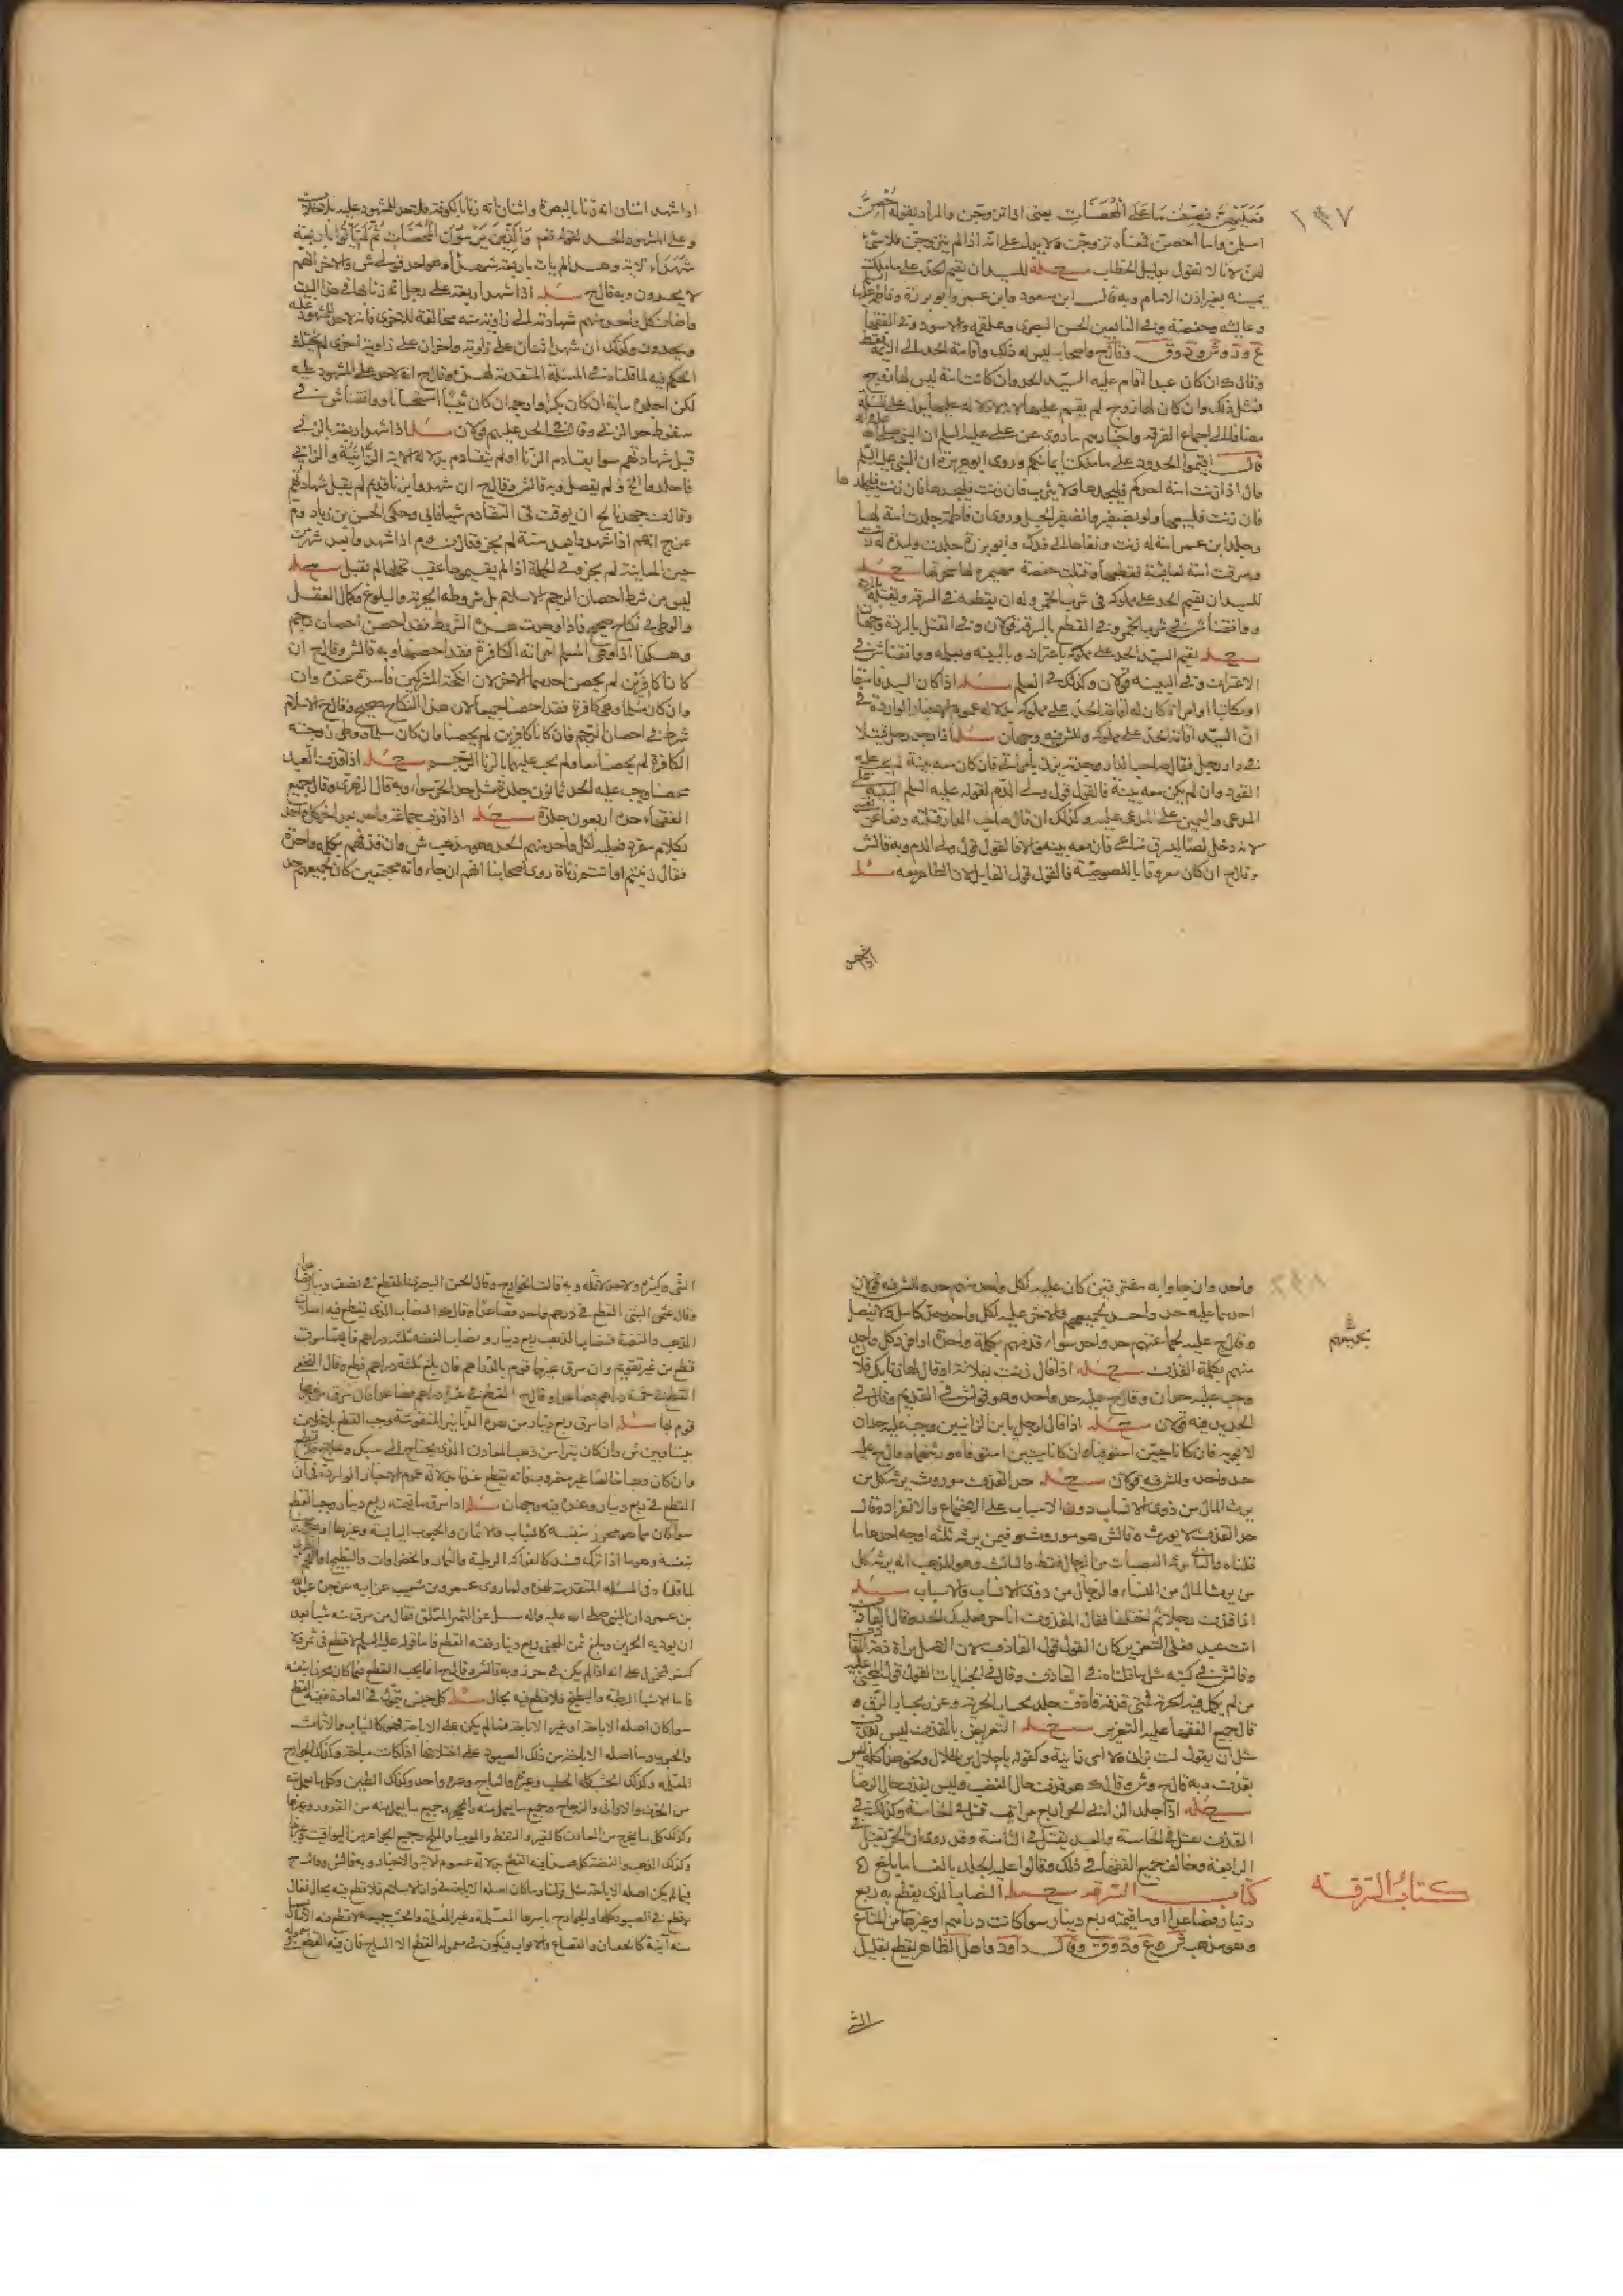 ٢٩٧
فعليهن نصف ما على المحصنات يعنى اذا تزوجن والمراد بقوله احصن
اسلمن واما احصن فمعناه تزوجن ولا يدل على انه اذا لم يتزوجن فلا شىء
لهن لانا لا نقول بدليل الخطاب مسئله للسيد ان يقيم الحد على ما ملكت
يمينه بغير اذن الامام وبه قال ابن مسعود وابن عمر وابو برزة وفاطمة عليها
وعايشه وحفصة وفى التابعين الحسن البصرى وعلقمه والاسود وفى الفقها
ع ود وش وق وقال ح واصحابه ليس له ذلك واقامة الحد الى الائمة فقط
وقال ك ان كان عبدا اقام عليه السيد الحد وان كانت امة ليس لها زوج
فمثل ذلك وان كان لها زوج لم يقم عليها
مضافا الى اجماع الفرقه واخبارهم ما روى عن على عليه السلم ان النبى صلى الله عليه واله
قال اقيموا الحدود على ما ملكت ايمانكم وروى ابو هريرة ان النبى عليه السلم
قال اذا زنت امة احدكم فليجلدها ولا يثرب فان زنت فليجلدها فان زنت فليجلدها
فان زنت فليبعها ولو بضفير والضفير الحبل وروى ان فاطمة جلدت امة لها
وجلد ابن عمر امة له زنت ونفاها الى فدك وابو برزة جلد وليدة له زنت
وسرقت امة لعايشة فقطعتها وقتلت حفصة مهيره لها سحرتها مسئله
للسيد ان يقيم الحد على مملوكه فى شرب الخمر وله ان يقطعه فى السرقه ويقتله بالردة
ووافقنا ش فى شرب الخمر وفى القطع بالسرقه قولان وفى القتل بالردة وجهان
مسئله يقيم السيد الحد على مملوكه باعترافه وبالبينه وبعلمه ووافقنا ش فى
الاعتراف وفى البينه قولان وكذلك فى العلم مسئله اذا كان السيد فاسقا
او مكاتبا او امراة كان له اقامة الحد على مملوكه بدلاله عموم الاخبار الواردة فى
ان السيد اقامة الحد على مملوكه وللش فيه وجهان مسئله اذا وجد رجل قتيلا
فى دار رجل فقال صاحب الدار وجدته يزنى بامراتى فان كان معه بينة لم يجب عليه
القود وان لم يكن معه بينة فالقول قول ولى الدم لقوله عليه السلم البينة على
المدعى واليمين على المدعى عليه وكذلك ان قال صاحب الدار قتلته دفعا عن نفسى
لانه دخل لصا ليسرق متاعى فان معه بينه والا فالقول قول ولى الدم وبه قال ش
وقال ح ان كان معروفا باللصوصية فالقول قول القاتل لان الظاهر معه مسئله
اذا شهد
اذا شهد اثنان انه زنا بالبصرة واثنان انه زنا بالكوفه فلا حد للمشهود عليه بلا خلاف
وعلى الشهود الحد لقوله تعم والذين يرمون المحصنات ثم لم ياتوا باربعة
شهداء الاية وهذا لم يات باربعة شهداء وهو احد قولى ش والاخر انهم
لا يحدون وبه قال ح مسئله اذا شهد اربعة على رجل انه زنا بها فى هذا البيت
واضاف كل واحد منهم شهادته الى زاوية منه مخالفة للاخرى فانه لا حد للمشهود عليه
ويحدون وكذلك ان شهد اثنان على زاوية واخران على زاوية اخرى لم يختلف
الحكم فيه لما قلناه فى المسئلة المتقدمة لهذه وقال ح انه لا حد على المشهود عليه
لكن اجلده ماية ان كان بكرا وارجم ان كان ثيبا استحسانا ووافقنا ش فى
سقوط حد الزنى وقال فى الحد عليهم قولان مسئله اذا شهد اربعة بالزنى
قبل شهادتهم سوا يقادم الزنا او لم يتقادم بدلاله الاية الزانية والزانى
فاجلدوا الخ ولم يفصل وبه قال ش وقال ح ان شهدوا بزنا قديم لم يقبل شهادتهم
وقال ف جهدنا بح ان يوقت فى التقادم شيئا فابى وحكى الحسن بن زياد وم
عن ح انهم اذا شهدوا بعد سنة لم يجز وقال ف وم اذا شهدوا بعد شهر من
حين المعاينة لم يجز وفى الجملة اذا لم يقيموها عقيب تحملها لم تقبل مسئله
ليس من شرط احصان الرجم الاسلام بل شروطه الحرية والبلوغ وكمال العقل
والوطى فى نكاح صحيح فاذا وجدت هذه الشروط فقد احصن احصان رجم
وهكذا اذا وطى المسلم امراته الكافرة فقد احصنها وبه قال ش وقال ح ان
كانا كافرين لم يحصن احدهما الاخر لان انكحة المشركين فاسدة عنده وان
وان كان مسلما وهى كافرة فقد احصنا جميعا لان هذا النكاح صحيح وقال ح الاسلام
شرط فى احصان الرجم فان كانا كافرين لم يحصنا فان كان مسلما ووطى زوجته
الكافرة لم يحصنا معا ولم يجب عليهما بالزنا الرجم مسئله اذا قذف العبد
محصنا وجب عليه الحد ثمانون جلدة مثل حد الحر سواء وبه قال الزهرى وقال جميع
الفقهاء حده اربعون جلدة مسئله اذا قذف جماعة واحدا بعد اخر كل واحد
بكلام مفرد فعليه لكل واحد منهم الحد وهو مذهب ش وان قذفهم بكلمة واحدة
فقال زنيتم او انتم زناة روى اصحابنا انهم ان جاءوا به مجتمعين كان لجميعهم حد
٢٩٨
واحد وان جاوا به مفترقين كان عليه لكل واحد منهم حد وللش فيه قولان
احدهما عليه حد واحد لجميعهم والاخر عليه لكل واحد حد كامل ولا تفصيل
وقال ح عليه لجماعتهم حد واحد سواء قذفهم بكلمة واحدة او افرد كل واحد
منهم بكلمة القذف مسئله اذا قال زنيت بفلانة او قال لها زنا بك فلان
وجب عليه حدان وقال ح عليه حد واحد وهو قول ش فى القديم وقال فى
الجديد فيه قولان مسئله اذا قال لرجل يا بن الزانيين وجب عليه حدان
لابويه فان كانا حيين استوفياه وان كانا ميتين استوفاه ورثتهما وقال ح عليه
حد واحد وللش فيه قولان مسئله حد القذف موروث يرثه كل من
يرث المال من ذوى الانساب دون الاسباب على الاجتماع والانفراد وقال
حد القذف لا يورث وقال ش هو موروث وفيمن يرثه ثلثة اوجه احدها ما
قلناه والثانى يرثه العصبات من الرجال فقط والثالث وهو المذهب انه يرثه كل
من يرث المال من النساء والرجال من ذوى الانساب والاسباب مسئله
اذا قذف رجلا ثم اختلفا فقال المقذوف انا حر فعليك الحد وقال القاذف
انت عبد فعلى التعزير كان القول قول القاذف لان الاصل براة ذمة القاذف
وقال ش فى كتبه مثل ما قلناه فى القاذف وقال فى الجنايات القول قول المجنى عليه
من لم يكمل فيه الحرية فمتى قذفه قاذف جلد بحساب الحرية وعزر بحساب الرق وه
قال جميع الفقها عليه التعزير مسئله التعريض بالقذف ليس بقذف
مثل ان يقول لست بزان ولا امى زانية وكقوله يا حلال بن الحلال ونحو هذا كله ليس
بقذف وبه قال ح وش وقال ك هو قذف حال الغضب وليس بقذف حال الرضا
مسئله اذا جلد الزانى الحر اربع مرات قتل فى الخامسة وكذلك فى
القذف يقتل فى الخامسة والعبد يقتل فى الثامنة وقد روى ان الحر يقتل فى
الرابعة وخالف جميع الفقها فى ذلك وقالوا عليه الحد بالغا ما بلغ
كتاب السرقه مسئله النصاب الذى يقطع به ربع
دينار فصاعدا او ما قيمته ربع دينار سوا كانت دراهم او غيرها من المتاع
وهو مذهب ش وع ود وق وقال داود واهل الظاهر يقطع بقليل
لجميعهم
كتاب السرقه
الشى
الشى وكثيره ولا حد لاقله وبه قالت الخوارج وقال الحسن البصرى القطع فى نصف دينار فصاعدا
وقال عثمن البتى القطع فى درهم واحد فصاعدا وقال ك النصاب الذى يقطع فيه اصلان
الذهب والفضة فنصاب الذهب ربع دينار ونصاب الفضه ثلثه دراهم فايهما سرق
قطع من غير تقويم وان سرق غيرهما قوم بالدراهم فان بلغ ثلثة دراهم قطع وقال النخعى
القطع فى خمسة دراهم فصاعدا وقال ح القطع فى عشرة دراهم فصاعدا فان سرق من غيرها
قوم بها مسئله اذا سرق ربع دينار من هذه الدنانير المنقوشة وجب القطع بلا خلاف
بيننا وبين ش وان كان تبرا من ذهب المعادن الذى يحتاج الى سبك وعلاج فلا قطع
وان كان ذهبا خالصا غير مضروب فانه يقطع عندنا بدلاله عموم الاخبار الواردة فى ان
القطع فى ربع دينار وعنده فيه وجهان مسئله اذا سرق ما قيمته ربع دينار وجب القطع
سوا كان مما هو محرز بنفسه كالثياب والاثمان والحبوب اليابسة وغيرها او غير محرز
بنفسه وهو ما اذا ترك فسد كالفواكه الرطبة والثمار والخضراوات والبطيخ
لما قلناه فى المسئله المتقدمة لهذه ولما روى عمرو بن شعيب عن ابيه عن جده عبد الله
بن عمر ان النبى صلى الله عليه واله سئل عن الثمر المعلق فقال من سرق منه شيا بعد
ان يؤويه الجرين وبلغ ثمن المجن ربع دينار ففيه القطع فاما قوله عليه السلم لا قطع فى ثمر ولا
كثر محمول على انه اذا لم يكن فى حرز وبه قال ش وقال ح انما يجب القطع فيما كان محرزا بنفسه
فاما الاشيا الرطبة والبطيخ فلا قطع فيه بحال مسئله كل جنس يتمول فى العادة ففيه القطع
سوا كان اصله الاباحة او غير الاباحة فما لم يكن على الاباحة فهو كالثياب والاثاث
والحبوب وما اصله الاباحة من ذلك الصيود على اختلافها اذا كانت مباحة وكذلك الجوارح
المعلمه وكذلك الخشب كله الحطب وغيره والساج وغيره واحد وكذلك الطين وكل ما يعمل منه
من الخزف والاوانى والزجاج وجميع ما يعمل منه والحجر وجميع ما يعمل منه من القدور وغيرها
وكذلك كل ما يخرج من المعادن كالقير والنفط والموميا والملح وجميع الجواهر من اليواقيت وغيرها
وكذلك الذهب والفضة كل هذا فيه القطع بدلاله عموم الاية والاخبار وبه قال ش وقال ح
فيما لم يكن اصله الاباحة مثل قولنا وما كان اصله الاباحة فى دار الاسلام فلا قطع فيه بحال فقال
لا قطع فى الصيود كلها والجوارح باسرها المعلمة وغير المعلمة والخشب جميعه لا قطع فيه الا ما يعمل
منه آنية كالجفان والقصاع والابواب فيكون فى معموله القطع الا الساج فان فيه القطع